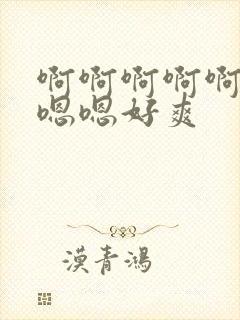 啊啊啊啊啊
嗯嗯好爽
漠青鸿